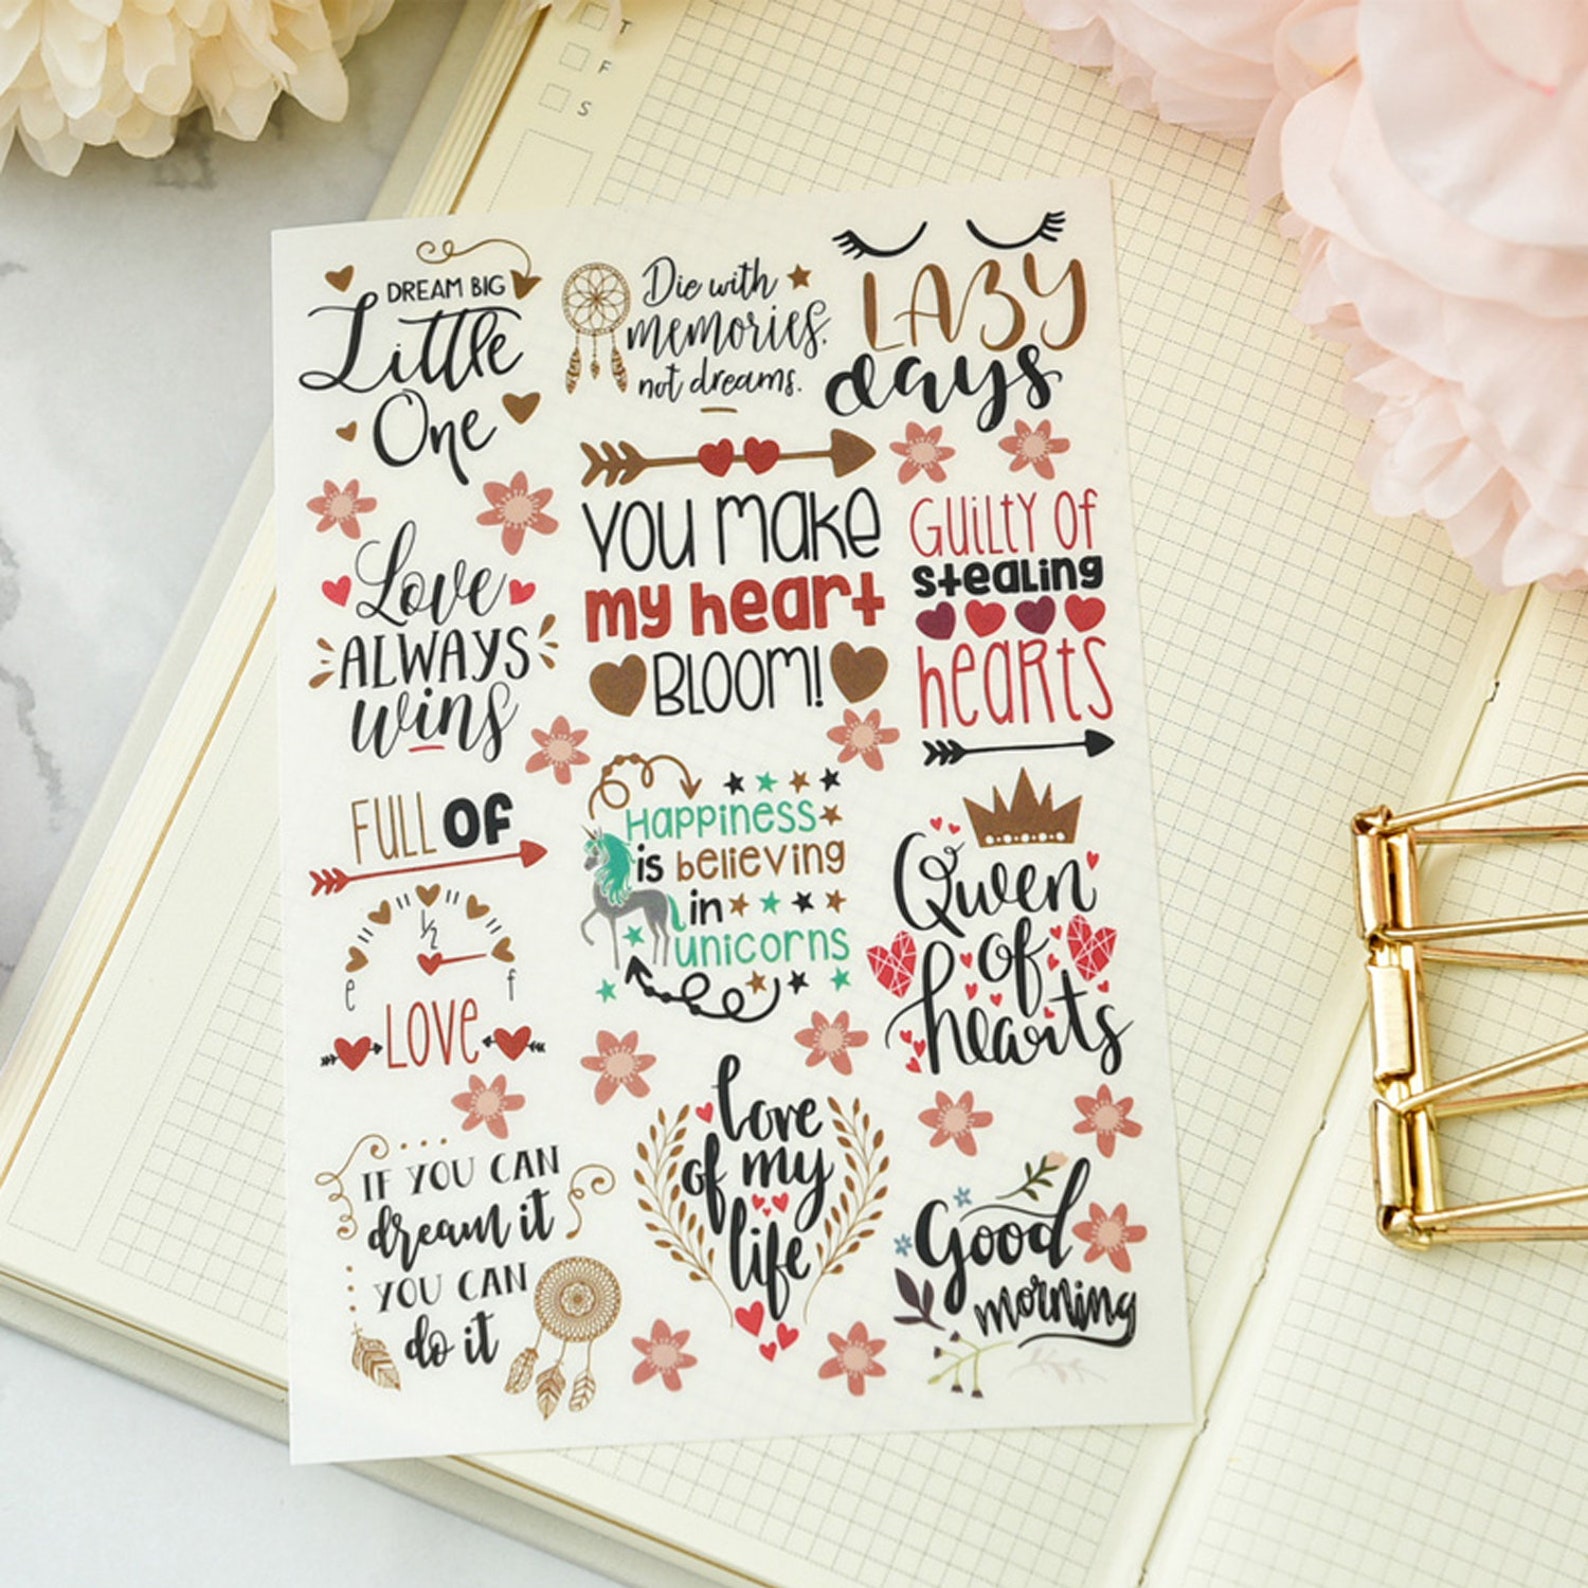 T
F
S
DREAM BIG
Little
One
Die with
memories,
not dreams.
LAZY
days
Love
ALWAYS
wins
YOU make
my heart
BLOOM!
GUILTY OF
stealing
hearts
FULL OF
1/2
e
f
LOVE
Happiness
is believing
in
unicorns
Queen
of
hearts
IF YOU CAN
dream it
YOU CAN
do it
love
of my
life
Good
morning